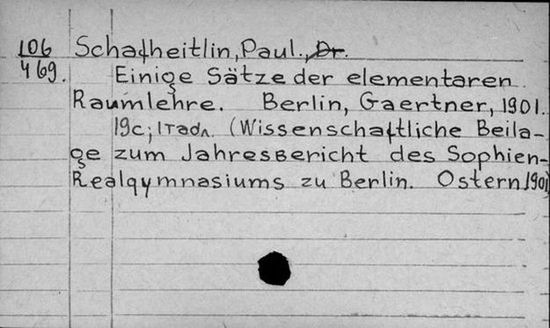 106 Schafheitlin, Paul., Dr.
469. Einige Sätze der elementaren
Raumlehre. Berlin, Gaertner, 1901.
19c; 1 табл. (Wissenschaftliche Beila-
ge zum Jahresbericht des Sophien-
Realgymnasiums zu Berlin. Ostern 1901)